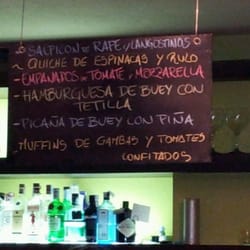 SALPICÓN DE RAPE Y LANGOSTINOS
- QUICHE DE ESPINACAS Y PULO
- EMPANADOS DE TOMATE Y MOZZARELLA
- HAMBURGUESA DE BUEY CON
TETILLA
- PICAÑA DE BUEY CON PIÑA
MUFFINS DE GAMBAS Y TOMATES
CONFITADOS